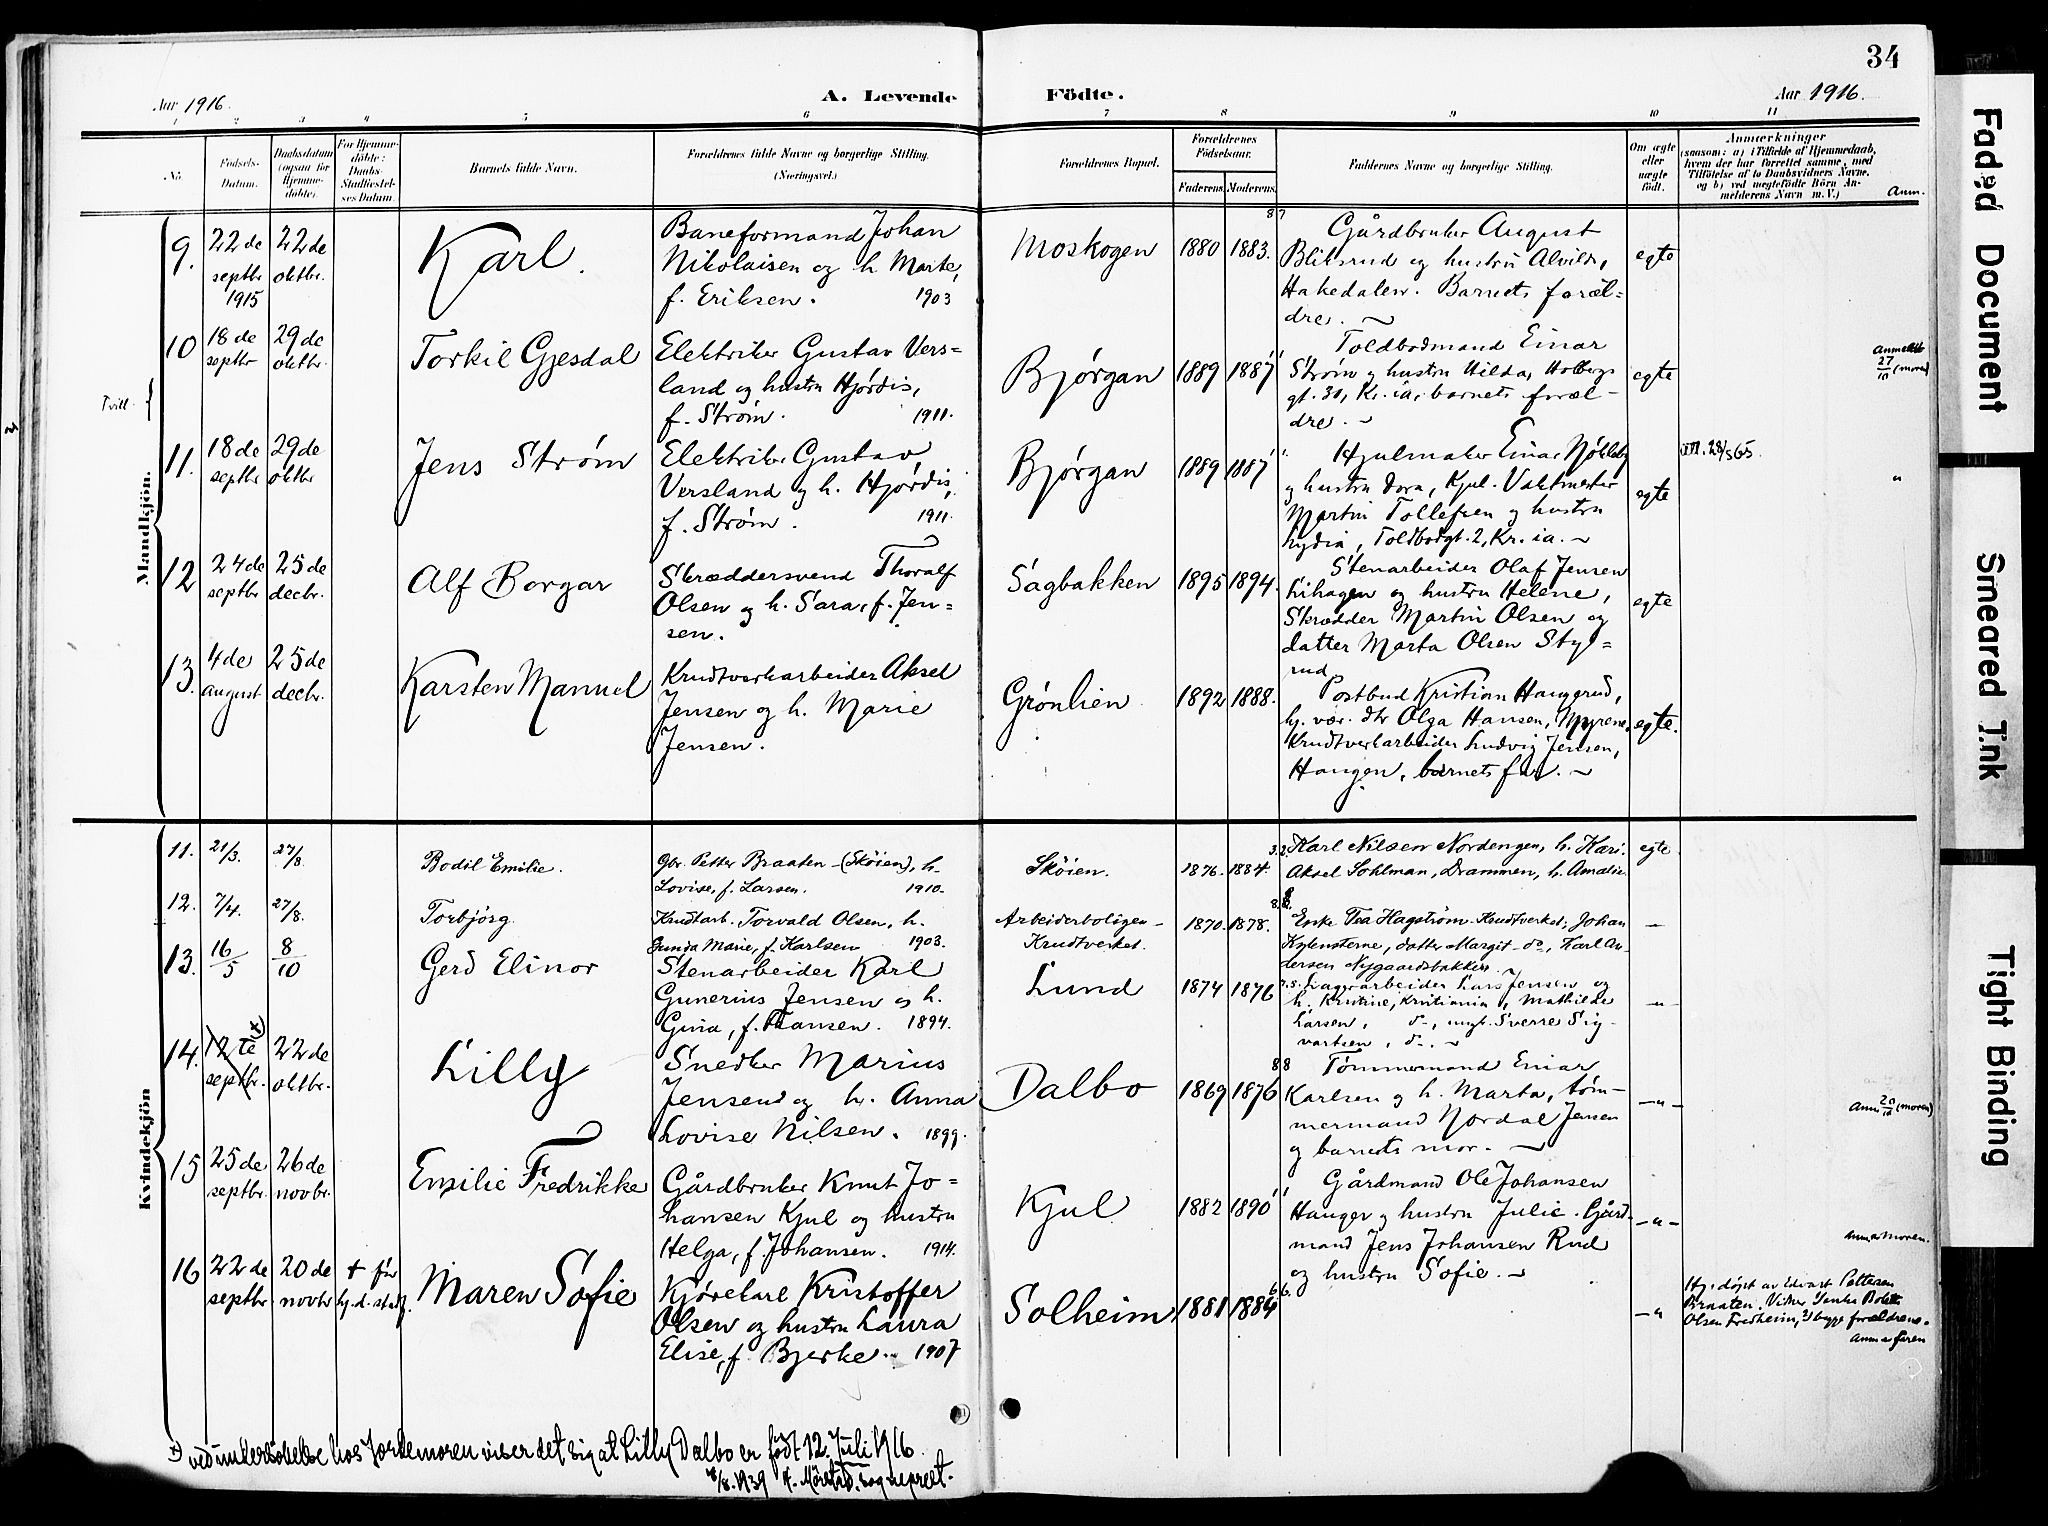 34
Aar 1916.
A. Levende Födte.
Aar 1916.
1 2 3 4 5 6 7 8 9 10 11
No.
Födsels-Datum.
Daabsdatum (ogsaa for Hjemmedöbte).
For Hjemmedöbte: Daabs-Stadfæstelses Datum.
Barnets fulde Navn.
Forældrenes fulde Navne og borgerlige Stilling.
(Næringsvei.)
Forældrenes Bopæl.
Forældrenes Födselsaar.
Faderens. Moderens.
Faddernes Navne og borgerlige Stilling.
Om ægte eller uægte født.
Anmærkninger
(saasom: a) i Tilfælde af Hjemmedaab, hvem der har forrettet samme, med Tilföielse af to Daabsvidners Navne, og b) ved uegtefödte Börn Anmelderens Navn m. V.)
Anm.
Mandkjön.
9. 22de septbr 1915
22de oktbr.
Karl.
Baneformand Johan
Nikolaisen og h. Marte,
f. Eriksen. 1903
Moskogen 1880 1883.
8 7
Gårdbruker August
Bliksrud og hustru Alvilde,
Hakedalen. Barnets foræl-
dre.
egte
10 18de septbr
29de oktbr.
Torkil Gjesdal
Elektriker Gustav Vers-
land og hustru Hjørdis,
f. Strøm. 1911.
Bjørgan 1889 1887
Toldbodmand Einar
Strøm og hustru Hilda, Holbergs
gt. 30, Kr.ia, barnets foræl-
dre.
egte
Anmeldt 27/10 (moren)
Tvill.
11. 18de septbr
29de oktbr
Jens Strøm
Elektriker Gustav
Versland og h. Hjørdis,
f. Strøm. 1911.
Bjørgan 1889 1887
Hjulmaker Einar Nøkleby
og hustru Dora, Kjul. Vaktmester
Martin Tollefsen og hustru
Lydia, Toldbodgt. 2, Kr.ia.
egte
"
12 24de septbr
25de decbr.
Alf Borgar
Skræddersvend Thoralf
Olsen og h. Sara, f. Jen-
sen.
Sagbakken 1895 1894.
Stenarbeider Olaf Jensen
Lihagen og hustru Helene,
Skrædder Martin Olsen og
datter Marta Olsen Styl-
rud
egte
13. 4de august
25de decbr.
Karsten Manuel
Krudtverkarbeider Aksel
Jensen og h. Marie
Jensen.
Grønlien 1892 1888.
Postbud Kristian Haugerud,
hj. vær. dtr Olga Hansen, Myrene,
Krudtverkarbeider Ludvig Jensen,
Haugen, barnets far.
egte.
Kvindekjön
11. 21/3. 27/8.
Bodil Emilie.
Gbr. Petter Braaten - (Skøien), h.
Lovise, f. Larsen. 1910.
Skøien. 1876. 1884.
3.2.
Karl Nilsen Nordengen, h. Kari.
Aksel Sohlman, Drammen, h. Amalie
egte
12. 7/4. 27/8.
Torbjørg.
Krudtarb. Torvald Olsen, h.
Gunda Marie, f. Karlsen 1903.
Arbeiderboligen -
Krudtverket.
1870. 1878.
Enke Tea Hagstrøm - Krudtverket, Johan
Kylensterne, datter Margit - do, Karl An-
dersen Nygaardsbakken.
—
13. 16/5 8/10
Gerd Elinor
Stenarbeider Karl
Gunerius Jensen og h.
Gina, f. Hansen. 1894.
Lund 1874 1876
7.5.
Lagerarbeider Lars Jensen og
h. Kristine, Kristiania, Mathilde
Larsen, do, ungk. Sverre Sig-
vartsen, do.
—"—
14. 12te (x) septbr.
22de oktbr.
Lilly
Snedker Marius
Jensen og h. Anna
Lovise Nilsen. 1899.
Dalbo 1869 1876
8 8
Tømmermand Einar
Karlsen og h. Marta, tøm-
mermand Nordal Jensen
og barnets mor.
—"—
Anm 20/10 (moren)
15 25de septbr.
26de novbr.
Emilie Fredrikke
Gårdbruker Knut Jo-
hansen Kjul og hustru
Helga, f. Johansen. 1914.
Kjul 1882 1890
Gårdmand Ole Johansen
Hauger og hustru Julie. Gård-
mand Jens Johansen Rud
og hustru Sofie.
—"—
anm. moren.
16 22de septbr
20de novbr
+ før hj.d. stadf.
Maren Sofie
Kjørekarl Kristoffer
Olsen og hustru Laura
Elise, f. Bjerke. 1907
Solheim 1881 1884
6 6.
—"
Hj. døpt av Edvart Pettersen
Braaten. Vidner
Olsen Fredheim, begge forældrene.
Anm. faren
x) ved undersøkelse hos Jordemoren viser det sig at Lilly Dalbo er født 12. Juli 1916.
4/8. 1939 sogneprest.
Faded Document
Smeared Ink
Tight Binding